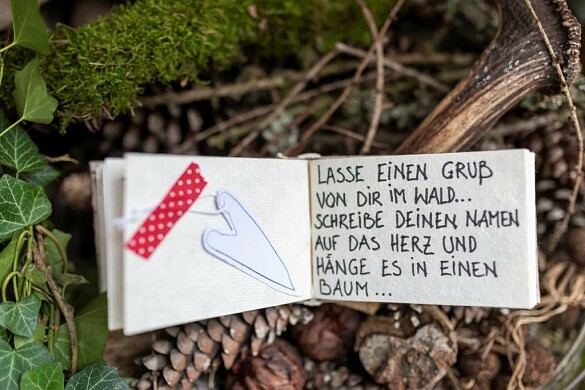 LASSE EINEN GRUß
VON DIR IM WALD...
SCHREIBE DEINEN NAMEN
AUF DAS HERZ UND
HÄNGE ES IN EINEN
BAUM...